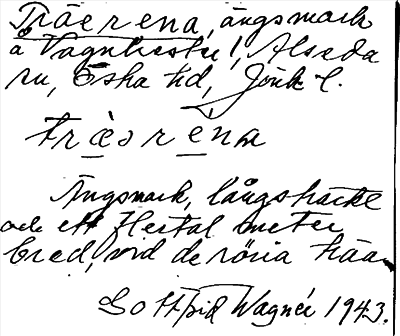 Träerena, ängsmark
å Vagnhester, Alseda
sn, Östra hd, Jönk. l.
træərèna
Ängsmark, långsträckt
och ett flertal meter
bred, vid de röria träa
Gottfrid Wagnér 1943.